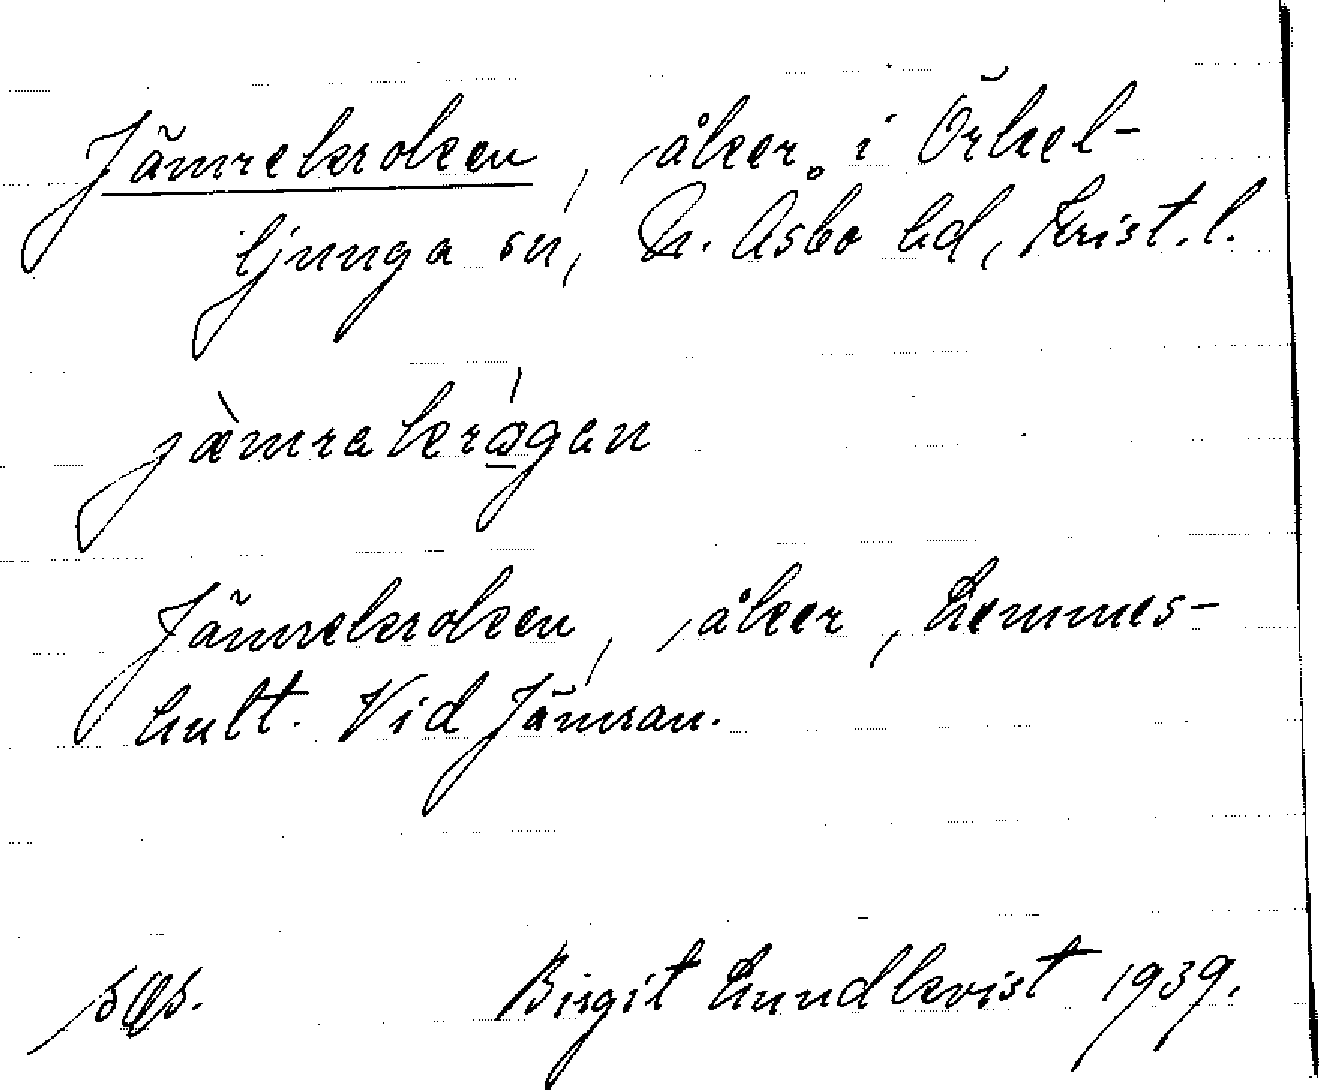 Jämrekroken, åker i Örkel-
ljunga sn, N. Åsbo hd, Krist. l.
jæ̀mrakrǿgan
Jämrekroken, åker, Lemmes-
hult. Vid Jämran.
Birgit Lundkvist 1939.